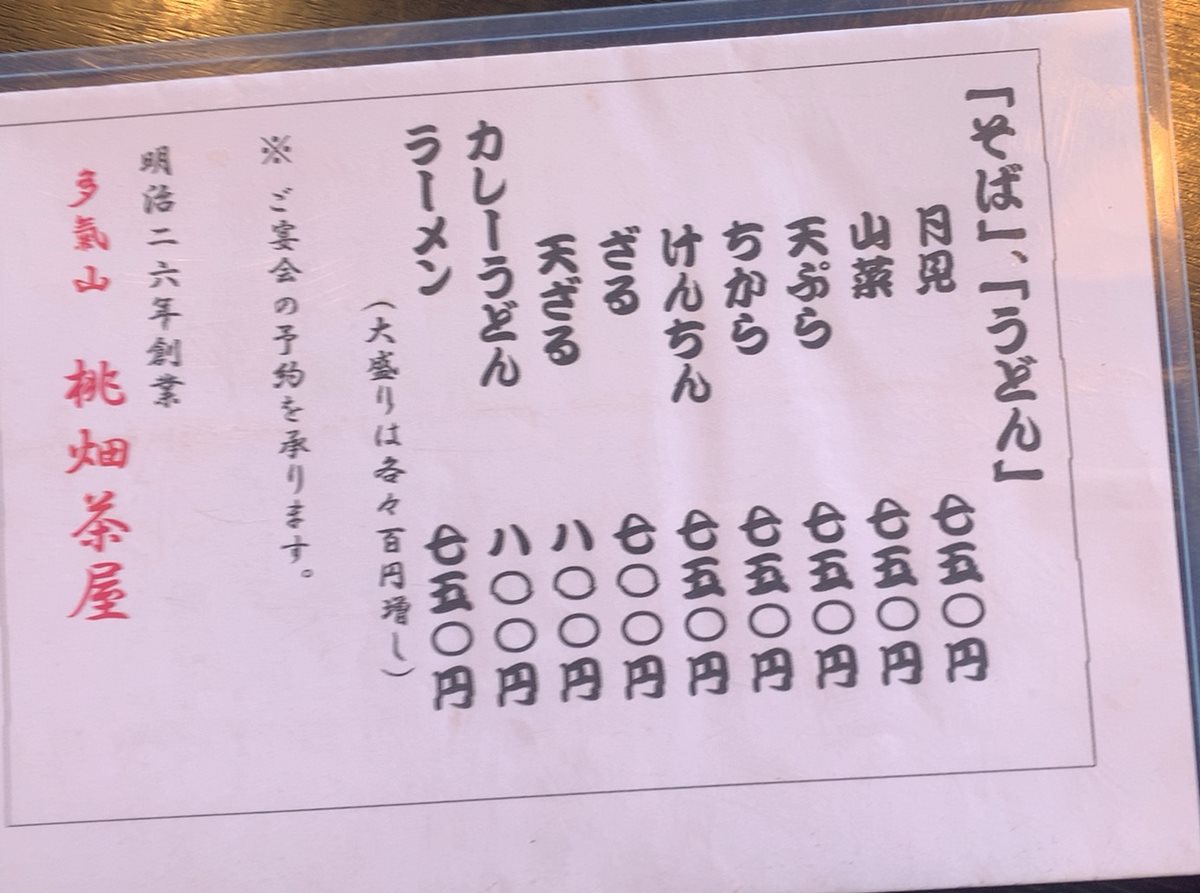 「そば」、「うどん」
月見 七五〇円
山菜 七五〇円
天ぷら 七五〇円
ちから 七五〇円
けんちん 七五〇円
ざる 七〇〇円
天ざる 八〇〇円
カレーうどん 八〇〇円
ラーメン 七五〇円
（大盛りは各々百円増し）
※ ご宴会の予約を承ります。
明治二六年創業
多氣山 桃畑茶屋